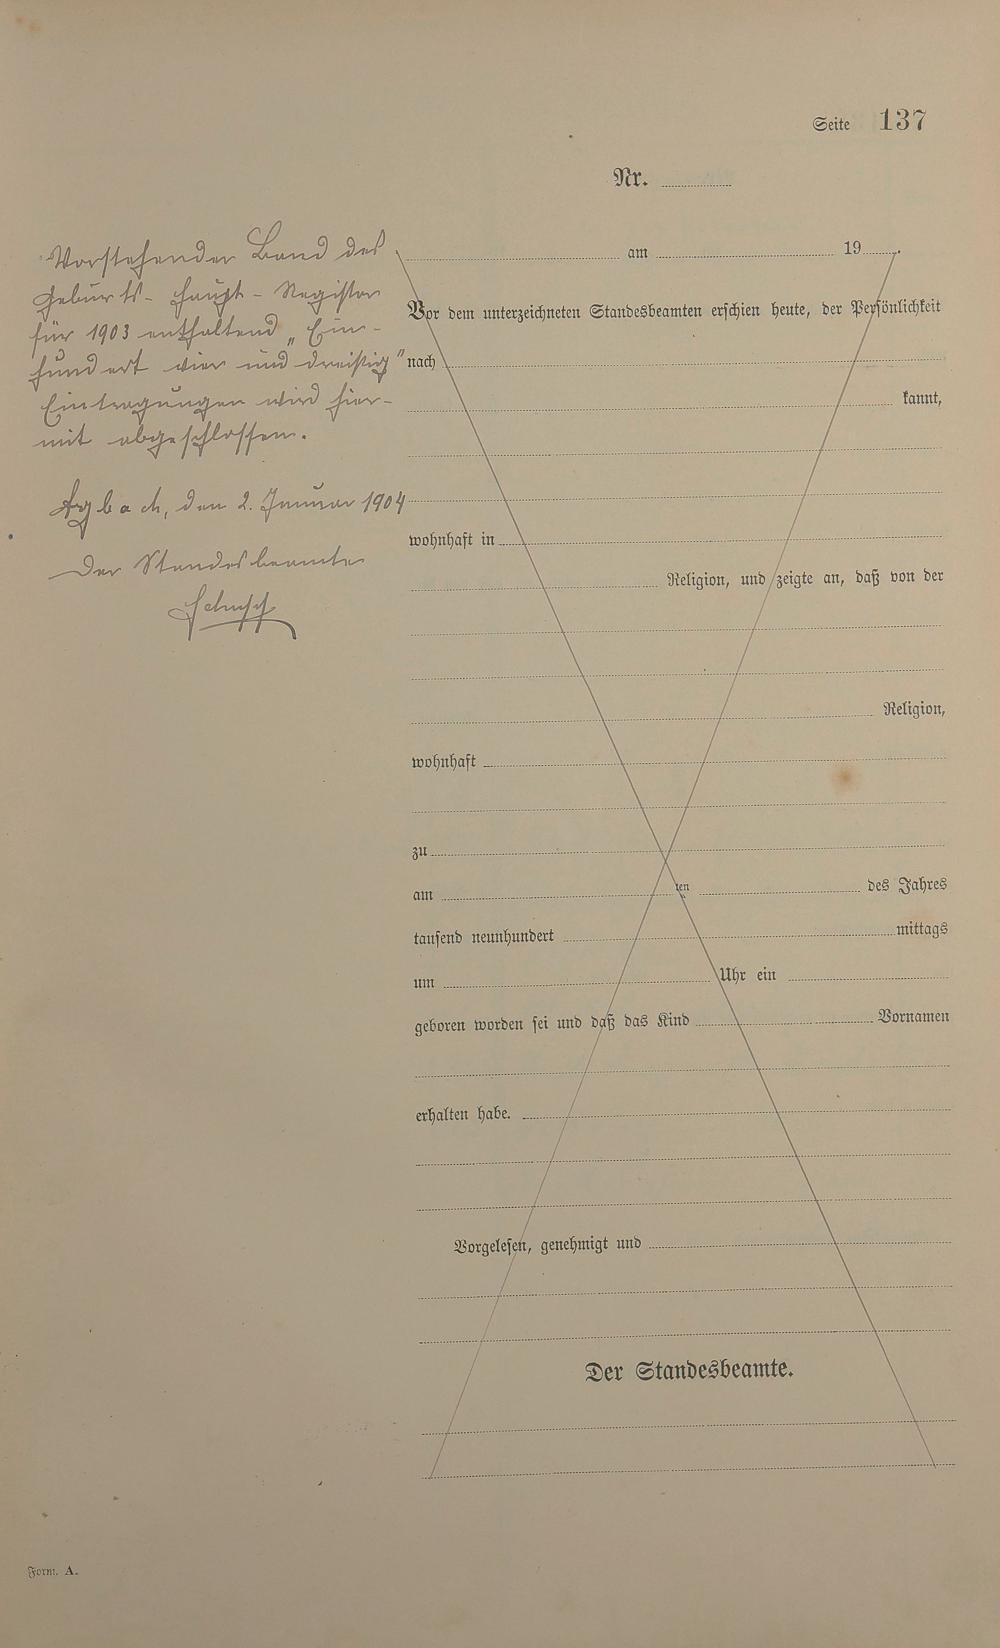 Seite 137
Nr.
Vorstehender Band des
Geburts-Haupt-Register
für 1903 enthaltend „Ein-
hundert vier und dreißig"
Eintragungen wird hier-
mit abgeschlossen.
den 2. Januar 1904
Der Standesbeamte
am 19
Vor dem unterzeichneten Standesbeamten erschien heute, der Persönlichkeit
nach
kannt,
wohnhaft in
Religion, und zeigte an, daß von der
Religion,
wohnhaft
zu
am ten des Jahres
tausend neunhundert mittags
um Uhr ein
geboren worden sei und daß das Kind Vornamen
erhalten habe.
Vorgelesen, genehmigt und
Der Standesbeamte.
Form. A.